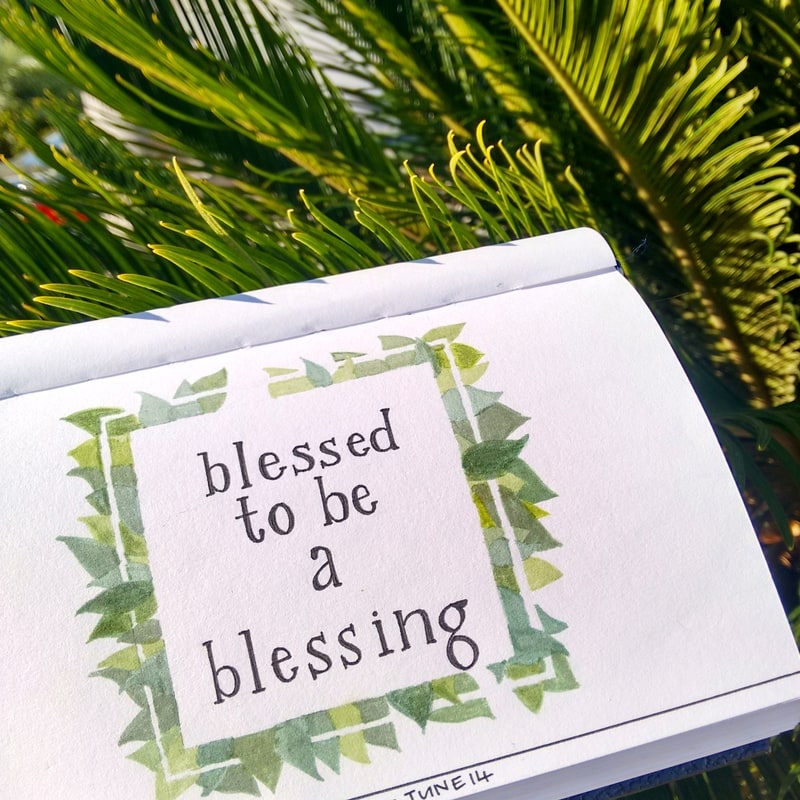 blessed
to be
a
blessing
JUNE 14